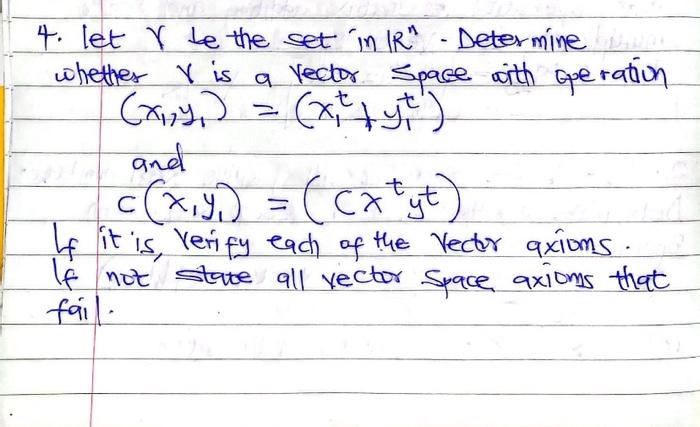 4. let V be the set in ℝⁿ. Determine
whether V is a vector space with operation
(x₁, y₁) = (x₁ᵗ + y₁ᵗ)
and
c(x, y₁) = (cxᵗyᵗ)
If it is, Verify each of the Vector axioms.
If not state all vector space axioms that
fail.